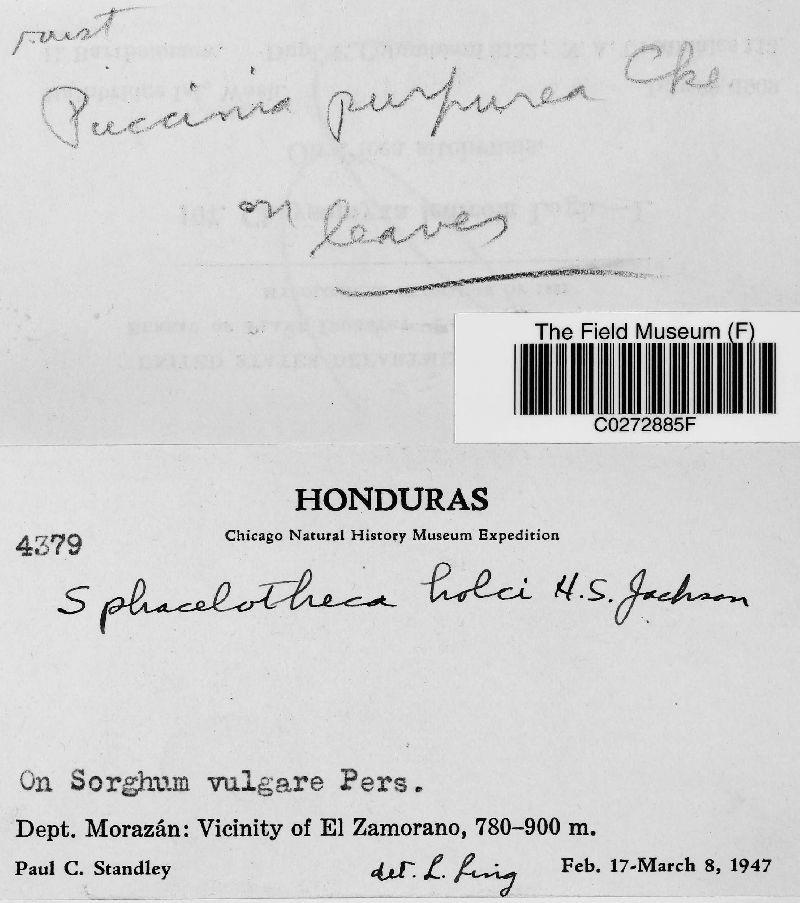 rust
Puccinia purpurea Cke
on
leaves
The Field Museum (F)
C0272885F
HONDURAS
Chicago Natural History Museum Expedition
4379
Sphacelotheca holci H.S. Jackson
On Sorghum vulgare Pers.
Dept. Morazán: Vicinity of El Zamorano, 780–900 m.
Paul C. Standley det. L. Ling Feb. 17-March 8, 1947